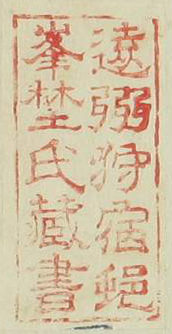 遠弼狩宿邨
峯埜氏藏書